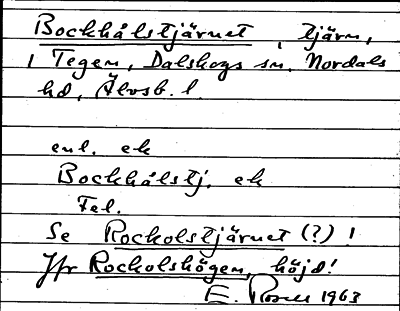 Bockhålstjärnet, tjärn,
i Tegen, Dalskogs sn, Nordals
hd, Älvsb. l.
enl. ek
Bockhålstj. ek
Fel.
Se Rockolstjärnet (?) !
Jfr Rockolshögen, höjd!
E. 1963